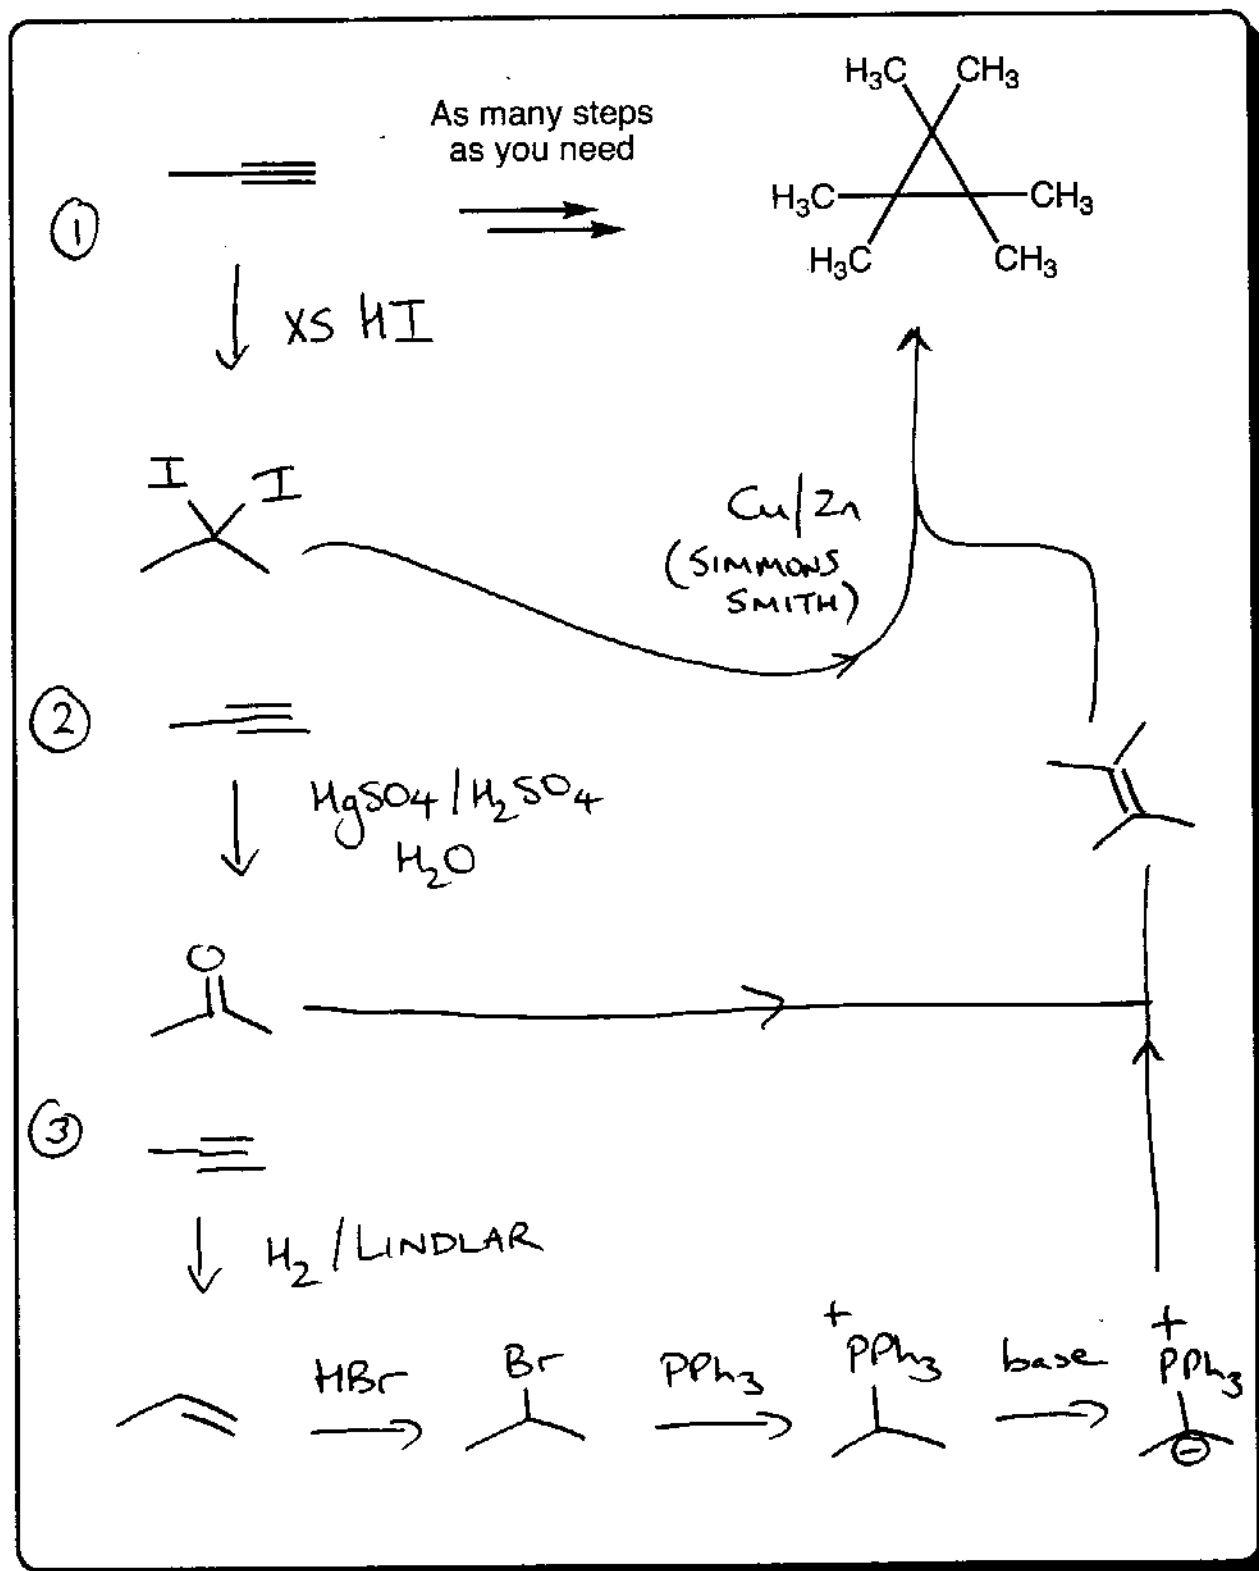 H₃C CH₃
As many steps
as you need
H₃C CH₃
H₃C CH₃
①
XS HI
I I
Cu/Zn
(SIMMONS
SMITH)
②
HgSO4/H₂SO4
H₂O
O
③
H₂/LINDLAR
HBr Br PPh₃ +PPh₃ base +PPh₃
⊖